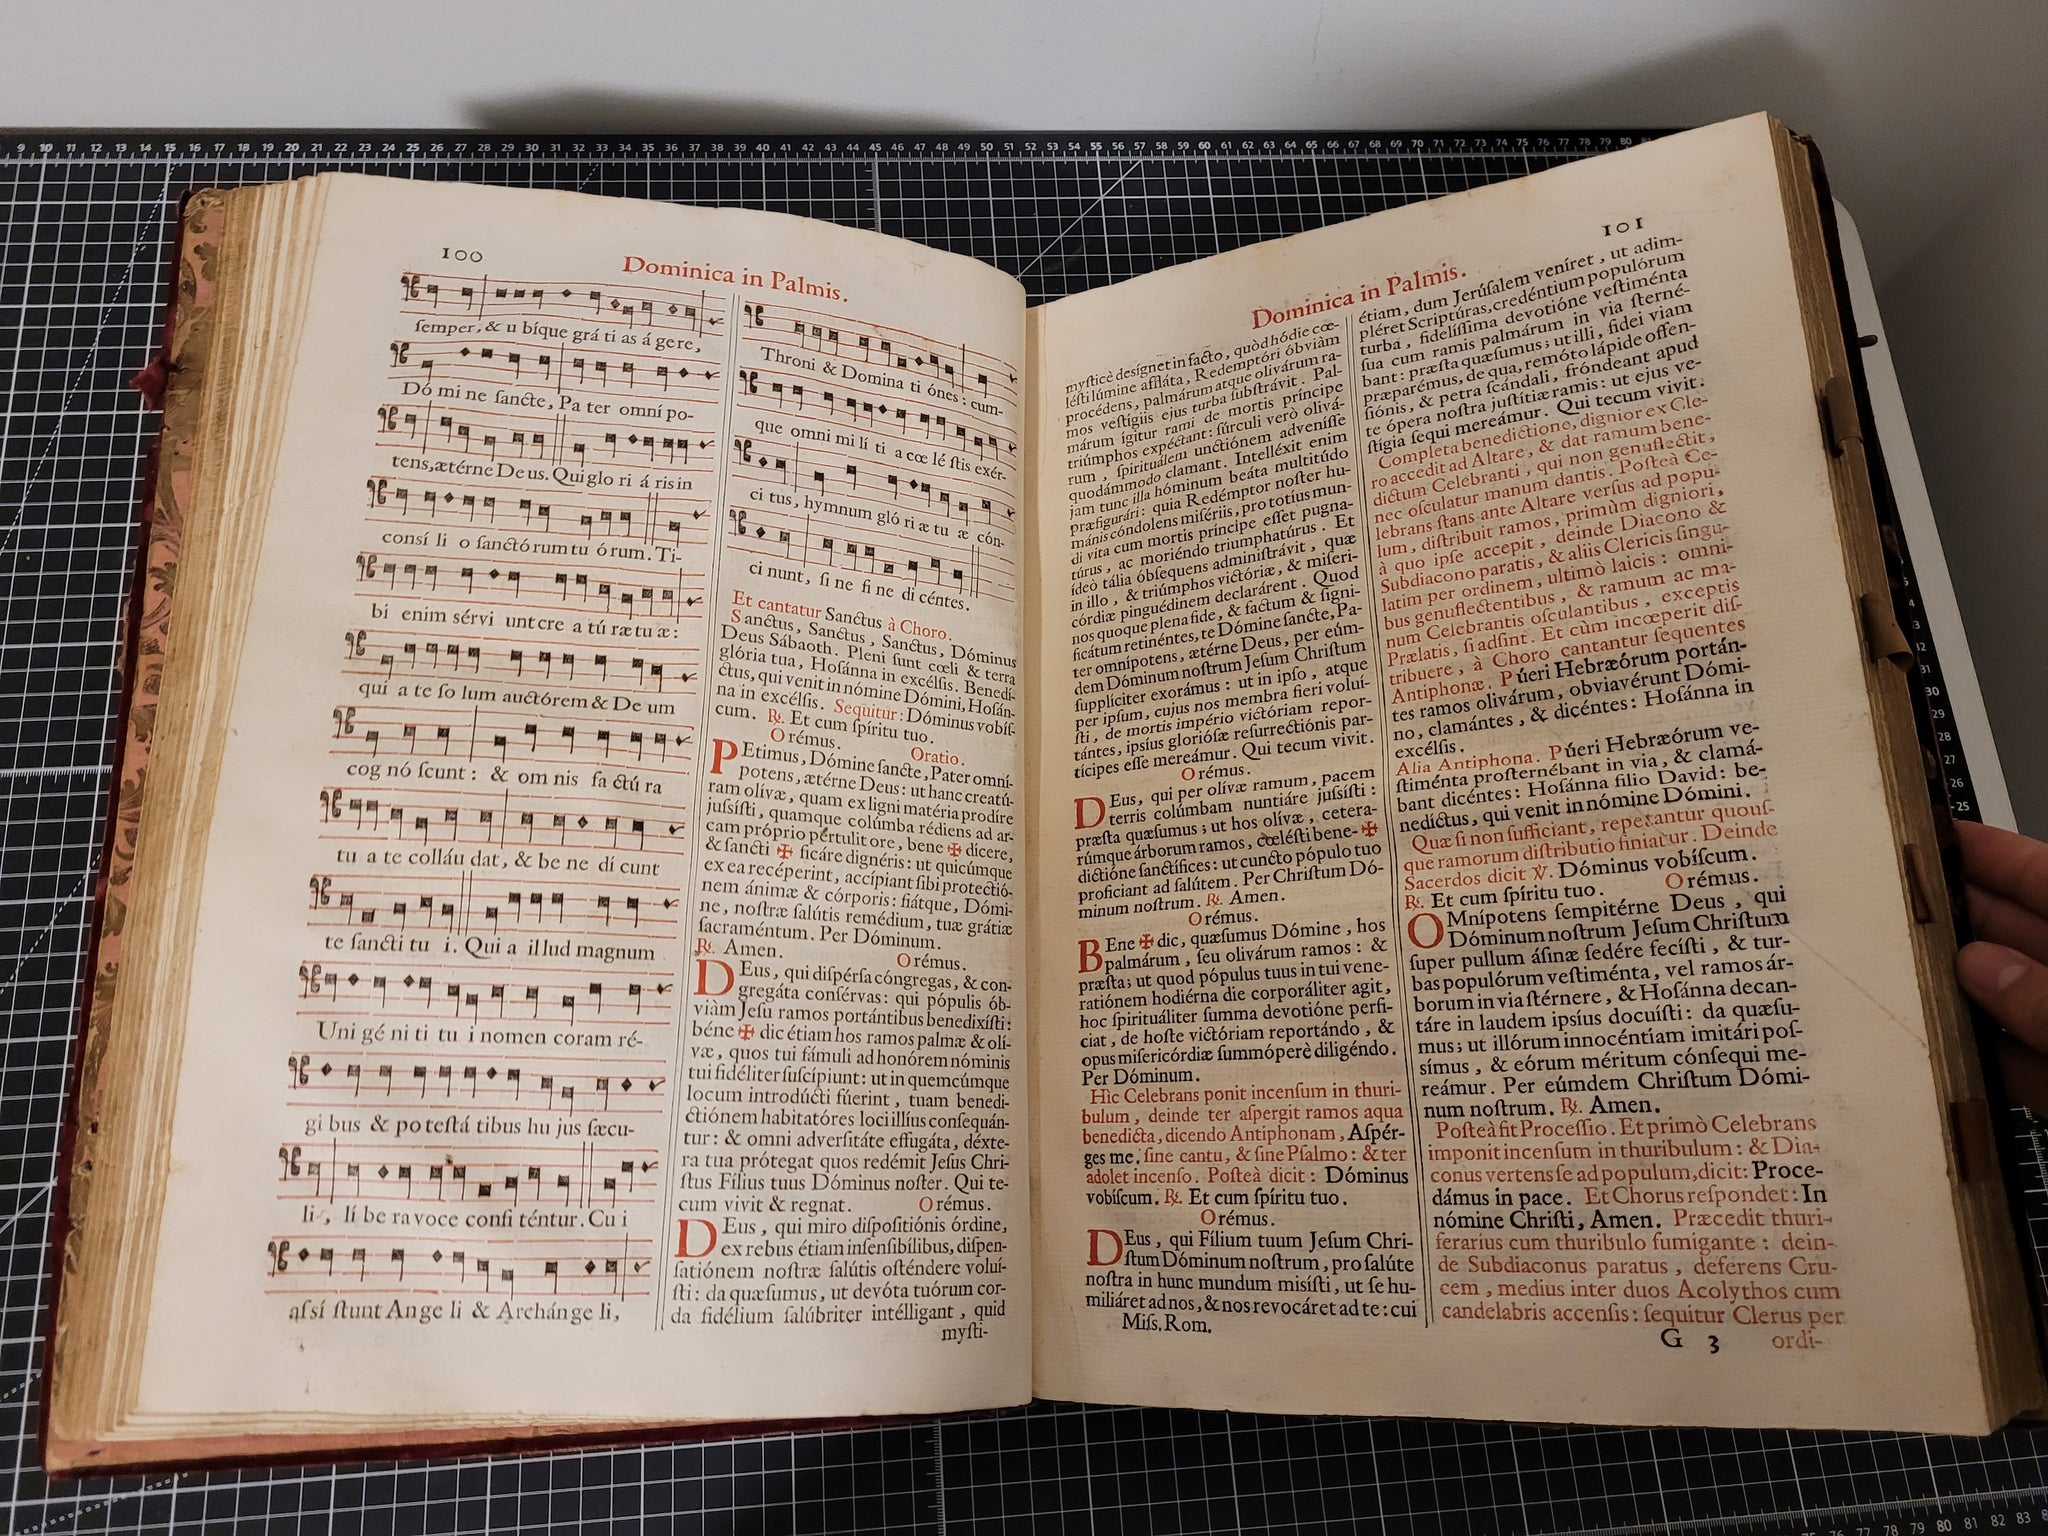 100
Dominica in Palmis.
ſemper, & u bíque grá ti as á gere,
Dó mi ne ſancte, Pa ter omní po-
tens, ætérne De us. Qui glo ri á ris in
consí li o ſanctó rum tu ó rum. Ti-
bi enim sérvi unt cre a tú ræ tu æ:
qui a te ſo lum auctórem & De um
cog nó ſcunt: & om nis fa ctú ra
tu a te colláu dat, & be ne dí cunt
te ſancti tu i. Qui a il lud magnum
Uni gé ni ti tu i nomen coram ré-
gi bus & po teſtá tibus hu jus ſæcu-
li, lí be ra voce confi téntur. Cu i
aſsí ſtunt Ange li & Archánge li,
Throni & Domina ti ónes: cum-
que omni mi lí ti a cœ lé ſtis exér-
ci tus, hymnum gló ri æ tu æ cón-
ci nunt, ſi ne fi ne di céntes.
Et cantatur Sanctus à Choro.
Sanctus, Sanctus, Sanctus, Dóminus
Deus Sábaoth. Pleni ſunt cœli & terra
glória tua, Hoſánna in excélſis. Benedí-
ctus, qui venit in nómine Dómini, Hoſán-
na in excélſis. Sequitur: Dóminus vobíſ-
cum. ℟. Et cum ſpíritu tuo.
Orémus. Oratio.
PEtimus, Dómine ſancte, Pater omní-
potens, ætérne Deus: ut hanc creatú-
ram olívæ, quam ex ligni matéria prodíre
juſsíſti, quamque colúmba rédiens ad ar-
cam próprio pértulit ore, bene ✠ dícere,
& ſancti ✠ ficáre dignéris: ut quicúmque
ex ea recéperint, accípiant ſibi protectió-
nem ánimæ & córporis: fiátque, Dómi-
ne, noſtræ ſalútis remédium, tuæ grátiæ
ſacraméntum. Per Dóminum.
℟. Amen. Orémus.
DEus, qui diſpérſa cóngregas, & con-
gregáta conſérvas: qui pópulis ób-
viàm Jeſu ramos portántibus benedixíſti:
béne ✠ dic étiam hos ramos palmæ & olí-
væ, quos tui fámuli ad honórem nóminis
tui fidéliter ſuſcípiunt: ut in quemcúmque
locum introdúcti fúerint, tuam benedi-
ctiónem habitatóres loci illíus conſequán-
tur: & omni adverſitáte effugáta, déxte-
ra tua prótegat quos redémit Jeſus Chri-
ſtus Fílius tuus Dóminus noſter. Qui te-
cum vivit & regnat. Orémus.
DEus, qui miro diſpoſitiónis órdine,
ex rebus étiam inſenſibílibus, diſpen-
ſatiónem noſtræ ſalútis oſténdere voluí-
ſti: da quæſumus, ut devóta tuórum cor-
da fidélium ſalúbriter intélligant, quid
myſti-
101
Dominica in Palmis.
myſticè desígnet in facto, quòd hódie cœ-
léſti lúmine affláta, Redemptóri óbviàm
procédens, palmárum atque olivárum ra-
mos veſtígiis ejus turba ſubſtrávit. Pal-
márum ígitur rami de mortis príncipe
triúmphos expéctant: ſúrculi verò olivá-
rum, ſpirituálem unctiónem adveníſſe
quodámmodo clamant. Intelléxit enim
jam tunc illa hóminum beáta multitúdo
præfigurári: quia Redémptor noſter hu-
mánis cóndolens miſériis, pro totíus mun-
di vita cum mortis príncipe eſſet pugna-
túrus, ac moriéndo triumphatúrus. Et
ídeò tália óbſequens adminiſtrávit, quæ
in illo, & triúmphos victóriæ, & miſeri-
córdiæ pinguédinem declarárent. Quod
nos quoque plena fide, & factum & ſigni-
ficátum retinéntes, te Dómine ſancte, Pa-
ter omnípotens, ætérne Deus, per eúm-
dem Dóminum noſtrum Jeſum Chriſtum
ſuppliciter exorámus: ut in ipſo, atque
per ipſum, cujus nos membra fíeri voluí-
ſti, de mortis império victóriam repor-
tántes, ipsíus glorióſæ reſurrectiónis par-
tícipes eſſe mereámur. Qui tecum vivit.
Orémus.
DEus, qui per olívæ ramum, pacem
terris colúmbam nuntiáre juſsíſti:
præſta quæſumus; ut hos olívæ, cetera-
rúmque árborum ramos, cœléſti bene- ✠
dictióne ſanctífices: ut cuncto pópulo tuo
profíciant ad ſalútem. Per Chriſtum Dó-
minum noſtrum. ℟. Amen.
Orémus.
BEne ✠ dic, quæſumus Dómine, hos
palmárum, ſeu olivárum ramos: &
præſta; ut quod pópulus tuus in tui vene-
ratiónem hodiérna die corporáliter agit,
hoc ſpirituáliter ſumma devotióne perfí-
ciat, de hoſte victóriam reportándo, &
opus miſericórdiæ ſummóperè diligéndo.
Per Dóminum.
Hìc Celebrans ponit incenſum in thuri-
bulum, deinde ter aſpergit ramos aqua
benedicta, dicendo Antiphonam, Aſpér-
ges me. ſine cantu, & ſine Pſalmo: & ter
adolet incenſo. Poſteà dicit: Dóminus
vobíſcum. ℟. Et cum ſpíritu tuo.
Orémus.
DEus, qui Fílium tuum Jeſum Chri-
ſtum Dóminum noſtrum, pro ſalúte
noſtra in hunc mundum misíſti, ut ſe hu-
miliáret ad nos, & nos revocáret ad te: cui
Miſſ. Rom.
étiam, dum Jerúſalem veníret, ut adim-
pléret Scriptúras, credéntium populórum
turba, fidelíſſima devotióne veſtiménta
ſua cum ramis palmárum in via ſterné-
bant: præſta quæſumus; ut illi, fídei viam
præparémus, de qua, remóto lápide offen-
ſiónis, & petra ſcándali, fróndeant apud
te ópera noſtra juſtítiæ ramis: ut ejus ve-
ſtígia ſequi mereámur. Qui tecum vivit.
Completa benedictione, dignior ex Cle-
ro accedit ad Altare, & dat ramum bene-
dictum Celebranti, qui non genuflectit,
nec oſculatur manum dantis. Poſteà Ce-
lebrans ſtans ante Altare verſus ad popu-
lum, diſtribuit ramos, primùm digniori,
à quo ipſe accepit, deinde Diacono &
Subdiacono paratis, & aliis Clericis ſingu-
latim per ordinem, ultimò laicis: omni-
bus genuflectentibus, & ramum ac ma-
num Celebrantis oſculantibus, exceptis
Prælatis, ſi adſint. Et cùm incœperit diſ-
tribuere, à Choro cantantur ſequentes
Antiphonæ. Púeri Hebræórum portán-
tes ramos olivárum, obviavérunt Dómi-
no, clamántes, & dicéntes: Hoſánna in
excélſis.
Alia Antiphona. Púeri Hebræórum ve-
ſtiménta proſternébant in via, & clamá-
bant dicéntes: Hoſánna filio David: be-
nedíctus, qui venit in nómine Dómini.
Quæ ſi non ſufficiant, repetantur quouſ-
que ramorum diſtributio finiatur. Deinde
Sacerdos dicit ℣. Dóminus vobíſcum.
℟. Et cum ſpíritu tuo. Orémus.
OMnípotens ſempitérne Deus, qui
Dóminum noſtrum Jeſum Chriſtum
ſuper pullum áſinæ ſedére feciſti, & tur-
bas populórum veſtiménta, vel ramos ár-
borum in via ſtérnere, & Hoſánna decan-
táre in laudem ipsíus docuíſti: da quæſu-
mus; ut illórum innocéntiam imitári poſ-
símus, & eórum méritum cónſequi me-
reámur. Per eúmdem Chriſtum Dómi-
num noſtrum. ℟. Amen.
Poſteà fit Proceſſio. Et primò Celebrans
imponit incenſum in thuribulum: & Dia-
conus vertens ſe ad populum, dicit: Proce-
dámus in pace. Et Chorus reſpondet: In
nómine Chriſti, Amen. Præcedit thuri-
ferarius cum thuribulo fumigante: dein-
de Subdiaconus paratus, deferens Cru-
cem, medius inter duos Acolythos cum
candelabris accenſis: ſequitur Clerus per
G 3 ordi-